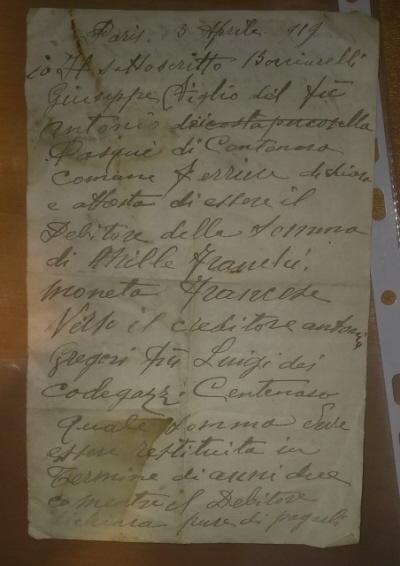 Paris. 3 Aprile 1919
io Il sottoscritto Bonciarelli
Giuseppe Figlio del fù
Antonio
di Centenaro
comune Ferriere dichiara
e attesta di essere il
Debitore della Somma
di Mille Franchi.
moneta Francese
Verso il creditore antonio
Gregori fù Luigi dei
codegazzi Centenaro
quale Somma deve
essere restituita in
Termine di anni due
e mentre il Debitore
dichiara pure di pagarli